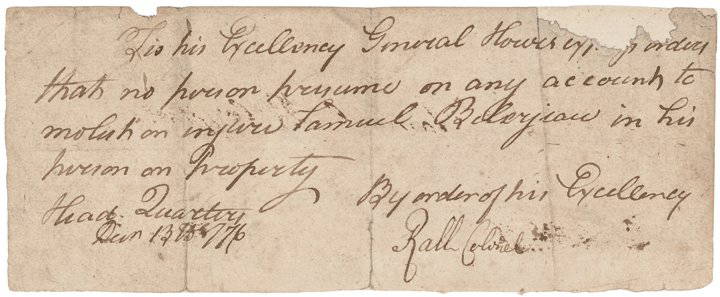 Tis his Excellency General Howes orders
that no person presume on any account to
molest on injure Samuel Belerjeau in his
person on Property
Head Quarters
Decr 13th 1776
By order of his Excellency
Rall Colonel